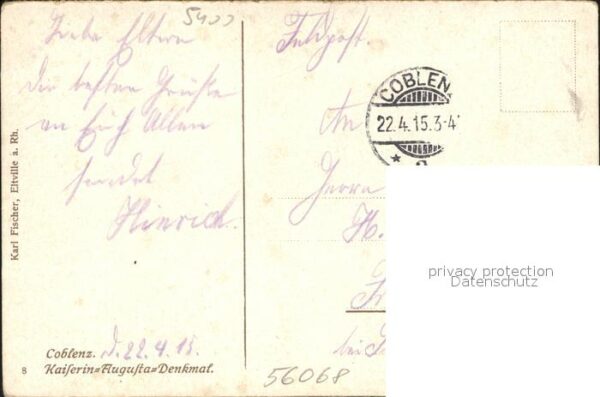 5400
Liebe Eltern
Die besten Grüße
an Euch Allen
sendet
Hinrich.
Feldpost.
COBLEN
22.4.15.3-4
An
Herrn
H.
bei
Karl Fischer, Eltville a. Rh.
privacy protection
Datenschutz
Coblenz. d. 22.4.15.
8 Kaiserin=Augusta=Denkmal.
56068